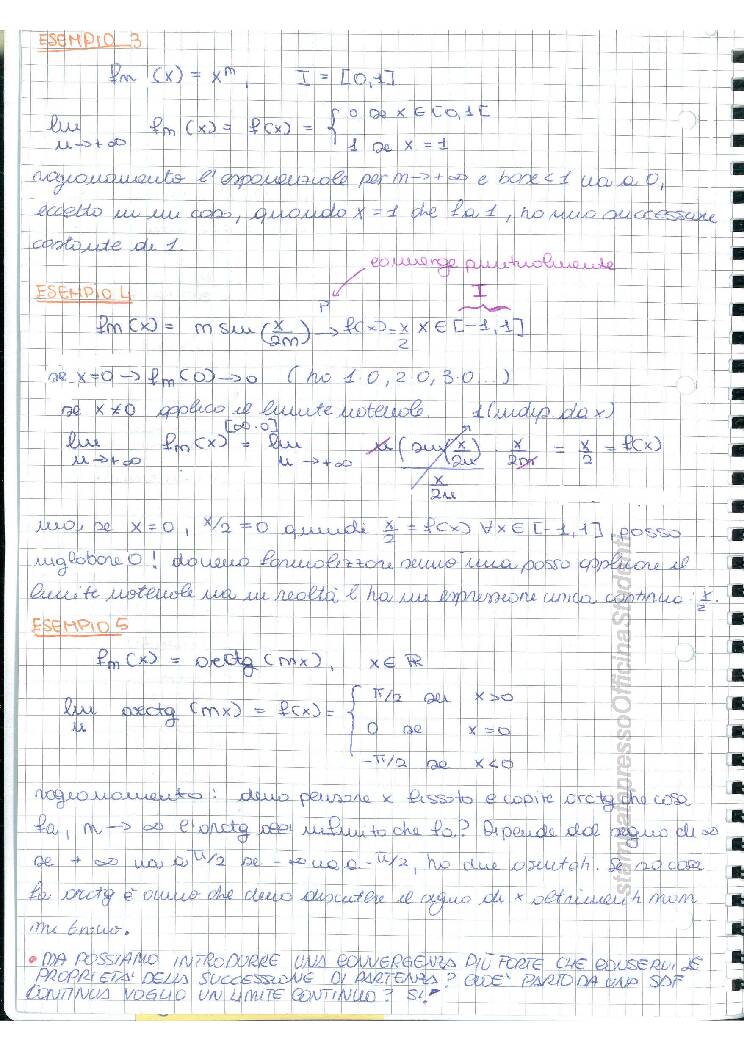 ESEMPIO 3
fn (x) = x^n, I = [0,1]
lim n→+∞ fn(x) = f(x) = { 0 se x ∈ [0,1[
1 se x = 1
ragionamento l'esponenziale per n→+∞ e base<1 va a 0,
eccetto in un caso, quando x=1 che fa 1, ho una successione
costante di 1.
converge puntualmente
ESEMPIO 4
I
fn(x) = n sin(x/2n) →^P f(x)=x/2 x ∈ [-1,1]
se x=0 → fn(0)→0 (ho 1·0, 2·0, 3·0...)
se x≠0 applico il limite notevole 1(indip da x)
[∞·0]
lim n→+∞ fn(x) = lim n→+∞ n (sin(x/2n))/(x/2n) · x/2n = x/2 = f(x)
ma, se x=0, x/2=0 quindi x/2 = f(x) ∀x∈[-1,1], posso
inglobare 0! dovevo formalizzare senno' non posso applicare il
limite notevole ma in realtà f ha un'espressione unica continua: x/2.
ESEMPIO 5
fn(x) = arctg (nx), x∈ ℝ
lim n arctg (nx) = f(x) = { π/2 se x>0
0 se x=0
-π/2 se x<0
ragionamento: devo pensare x fissato e capire arctg che cosa
fa, n→∞ l'arctg all'infinito che fa? Dipende dal segno di ∞
se +∞ va a π/2 se -∞ va a -π/2, ho due asintoti. Se so cosa
fa arctg è ovvio che devo discutere il segno di x altrimenti non
mi trovo.
• MA POSSIAMO INTRODURRE UNA CONVERGENZA PIÙ FORTE CHE CONSERVI LE
PROPRIETÀ DELLA SUCCESSIONE DI PARTENZA? CIOE' PARTO DA UNA SDF
CONTINUA VOGLIO UN LIMITE CONTINUO? SI!
stampatopressoOfficinaStudenti